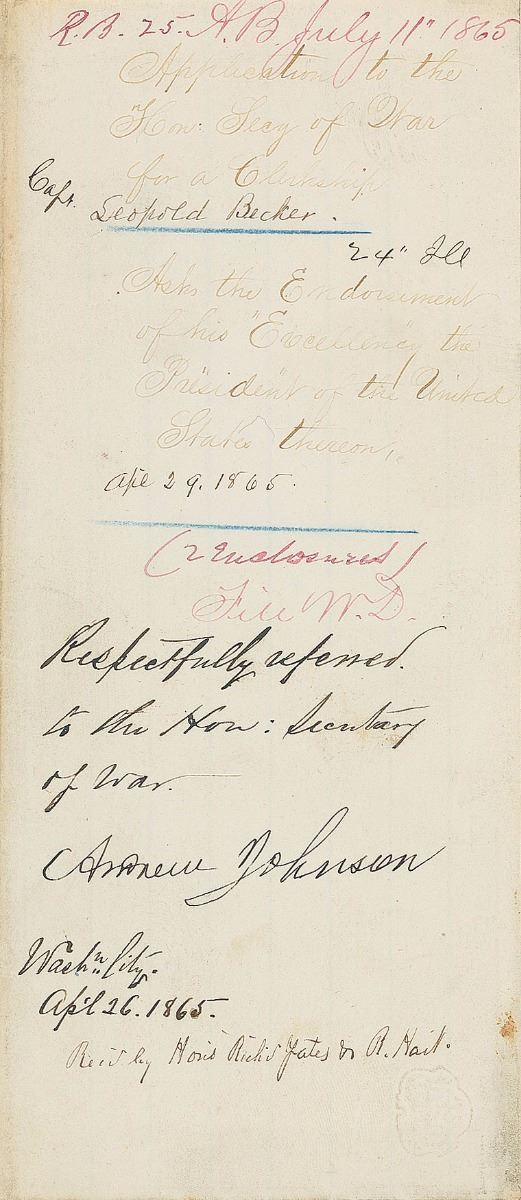 R.B. 25. A.B. July 11" 1865
Application to the
Hon: Secy of War
for a Clerkship
Capt.
Leopold Becker.
24" Ill
Asks the Endorsement
of his "Excellency the
President" of the United
States thereon,
Apl 29. 1865.
(2 Enclosures)
File W.D.
Respectfully referred.
to the Hon: Secretary
of War.
Andrew Johnson
Washn City.
Apl 26. 1865.
by Hons Richd Yates & R.